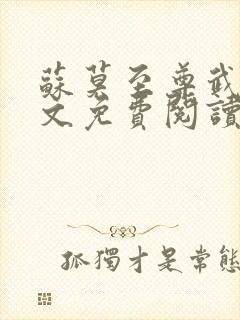 蘇莫至尊武
文免費閱讀
孤獨才是常態